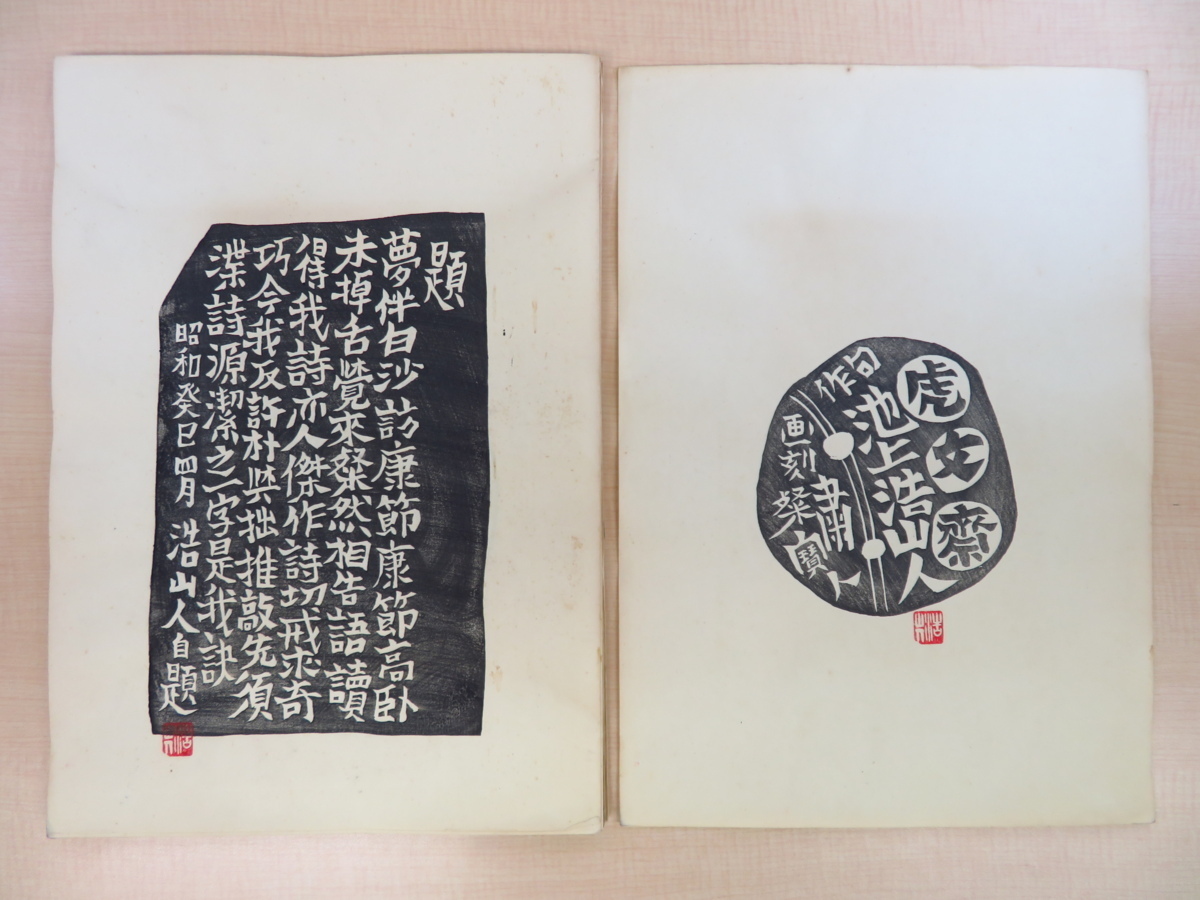 題
夢伴白沙訪康節康節高卧
未掉舌覺來粲然相告語讀
得我詩亦人傑作詩切戒求奇
巧今我反許朴與拙推敲先須
渫詩源潔之一字是我訣
昭和癸巳四月 浩山人自題
虎父齋
句作 池上浩山人
肅
画刻粲寶卜